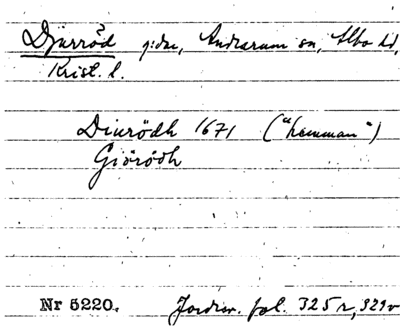 Djurröd gden, Andrarum sn, Albo hd,
Krist. l.
Diurödh 1671 ("hemman")
Giörödh
Nr 5220. Jordrev. fol. 325 r, 329 v